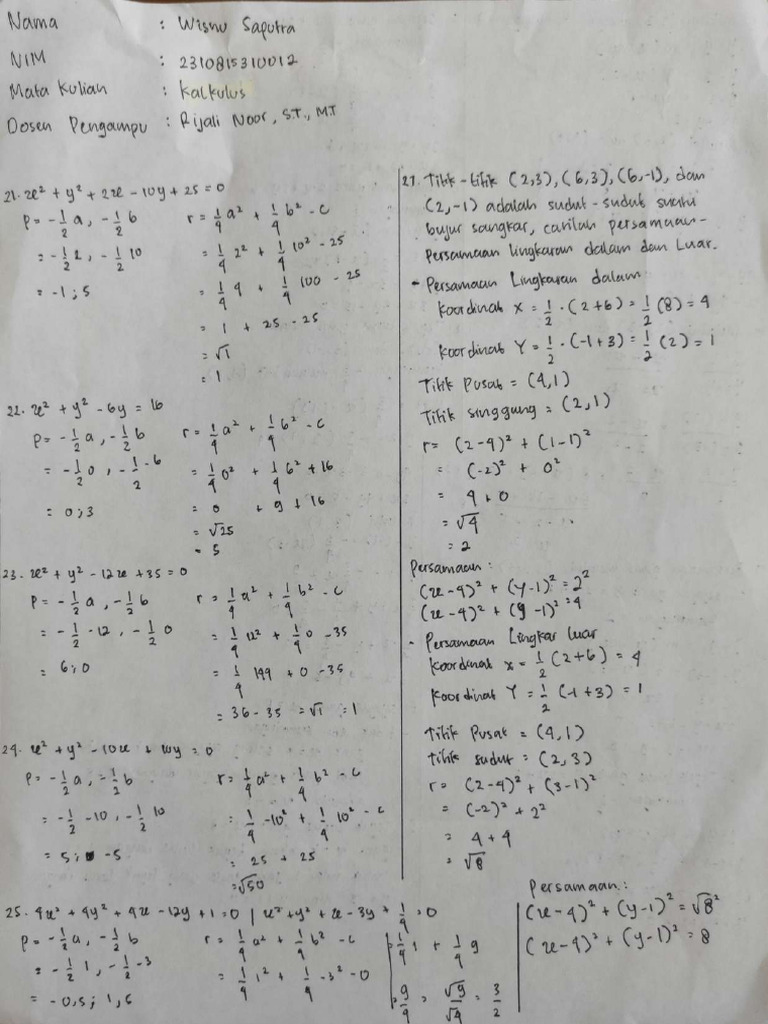 Nama : Wisnu Saputra
NIM : 2310815310012
Mata Kuliah : Kalkulus
Dosen Pengampu : Rijali Noor, S.T., M.T
21. x² + y² + 2x - 10y + 25 = 0
P = -1/2 a, -1/2 b
= -1/2 2, -1/2 10
= -1 ; 5
r = 1/4 a² + 1/4 b² - c
= 1/4 2² + 1/4 10² - 25
= 1/4 4 + 1/4 100 - 25
= 1 + 25 - 25
= √1
= 1
22. x² + y² - 6y = 16
P = -1/2 a, -1/2 b
= -1/2 0, -1/2 -6
= 0 ; 3
r = 1/4 a² + 1/4 b² - c
= 1/4 0² + 1/4 6² + 16
= 0 + 9 + 16
= √25
= 5
23. x² + y² - 12x + 35 = 0
P = -1/2 a, -1/2 b
= -1/2 -12, -1/2 0
= 6 ; 0
r = 1/4 a² + 1/4 b² - c
= 1/4 12² + 1/4 0 - 35
= 1/4 144 + 0 - 35
= 36 - 35 = √1 = 1
24. x² + y² - 10x + 10y = 0
P = -1/2 a, -1/2 b
= -1/2 -10, -1/2 10
= 5 ; -5
r = 1/4 a² + 1/4 b² - c
= 1/4 -10² + 1/4 10² - c
= 25 + 25
= √50
25. 4x² + 4y² + 4x - 12y + 1 = 0 | x² + y² + x - 3y + 1/4 = 0
P = -1/2 a, -1/2 b
= -1/2 1, -1/2 -3
= -0,5 ; 1,5
r = 1/4 a² + 1/4 b² - c
= 1/4 1² + 1/4 -3² - 0
1/4 1 + 1/4 9
9/4 = √9/√4 = 3/2
27. Titik-titik (2,3), (6,3), (6,-1), dan
(2,-1) adalah sudut-sudut suatu
bujur sangkar, carilah persamaan-
persamaan lingkaran dalam dan Luar.
- Persamaan Lingkaran dalam
Koordinat X = 1/2 · (2+6) = 1/2 (8) = 4
Koordinat Y = 1/2 · (-1+3) = 1/2 (2) = 1
Titik Pusat = (4,1)
Titik singgung = (2,1)
r = (2-4)² + (1-1)²
= (-2)² + 0²
= 4 + 0
= √4
= 2
Persamaan :
(x-4)² + (y-1)² = 2²
(x-4)² + (y-1)² = 4
- Persamaan Lingkar luar
Koordinat x = 1/2 (2+6) = 4
Koordinat Y = 1/2 (-1+3) = 1
Titik Pusat = (4,1)
titik sudut = (2,3)
r = (2-4)² + (3-1)²
= (-2)² + 2²
= 4 + 4
= √8
Persamaan :
(x-4)² + (y-1)² = √8²
(x-4)² + (y-1)² = 8